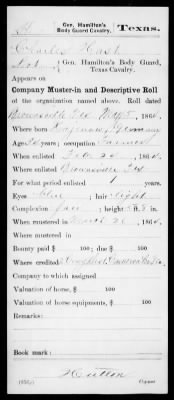 H
Gen. Hamilton's
Body Guard Cavalry.
Texas.
Charles Hast
Gen. Hamilton's Body Guard,
Texas Cavalry.
Appears on
Company Muster-in and Descriptive Roll
of the organization named above. Roll dated
Brownsville Tex, May 5, 1864.
Where born Germany
Age years; occupation Farmer
When enlisted Feb. 24, 1864.
Where enlisted Brownsville Tex
For what period enlisted 1 years.
Eyes blue; hair light
Complexion fair; height 5 ft. 8 in.
When mustered in March 20, 1864.
Where mustered in
Bounty paid $ 100; due $ 100
Where credited
Company to which assigned
Valuation of horse, $ 100
Valuation of horse equipments, $ 100
Remarks:
Book mark:
Copyist.